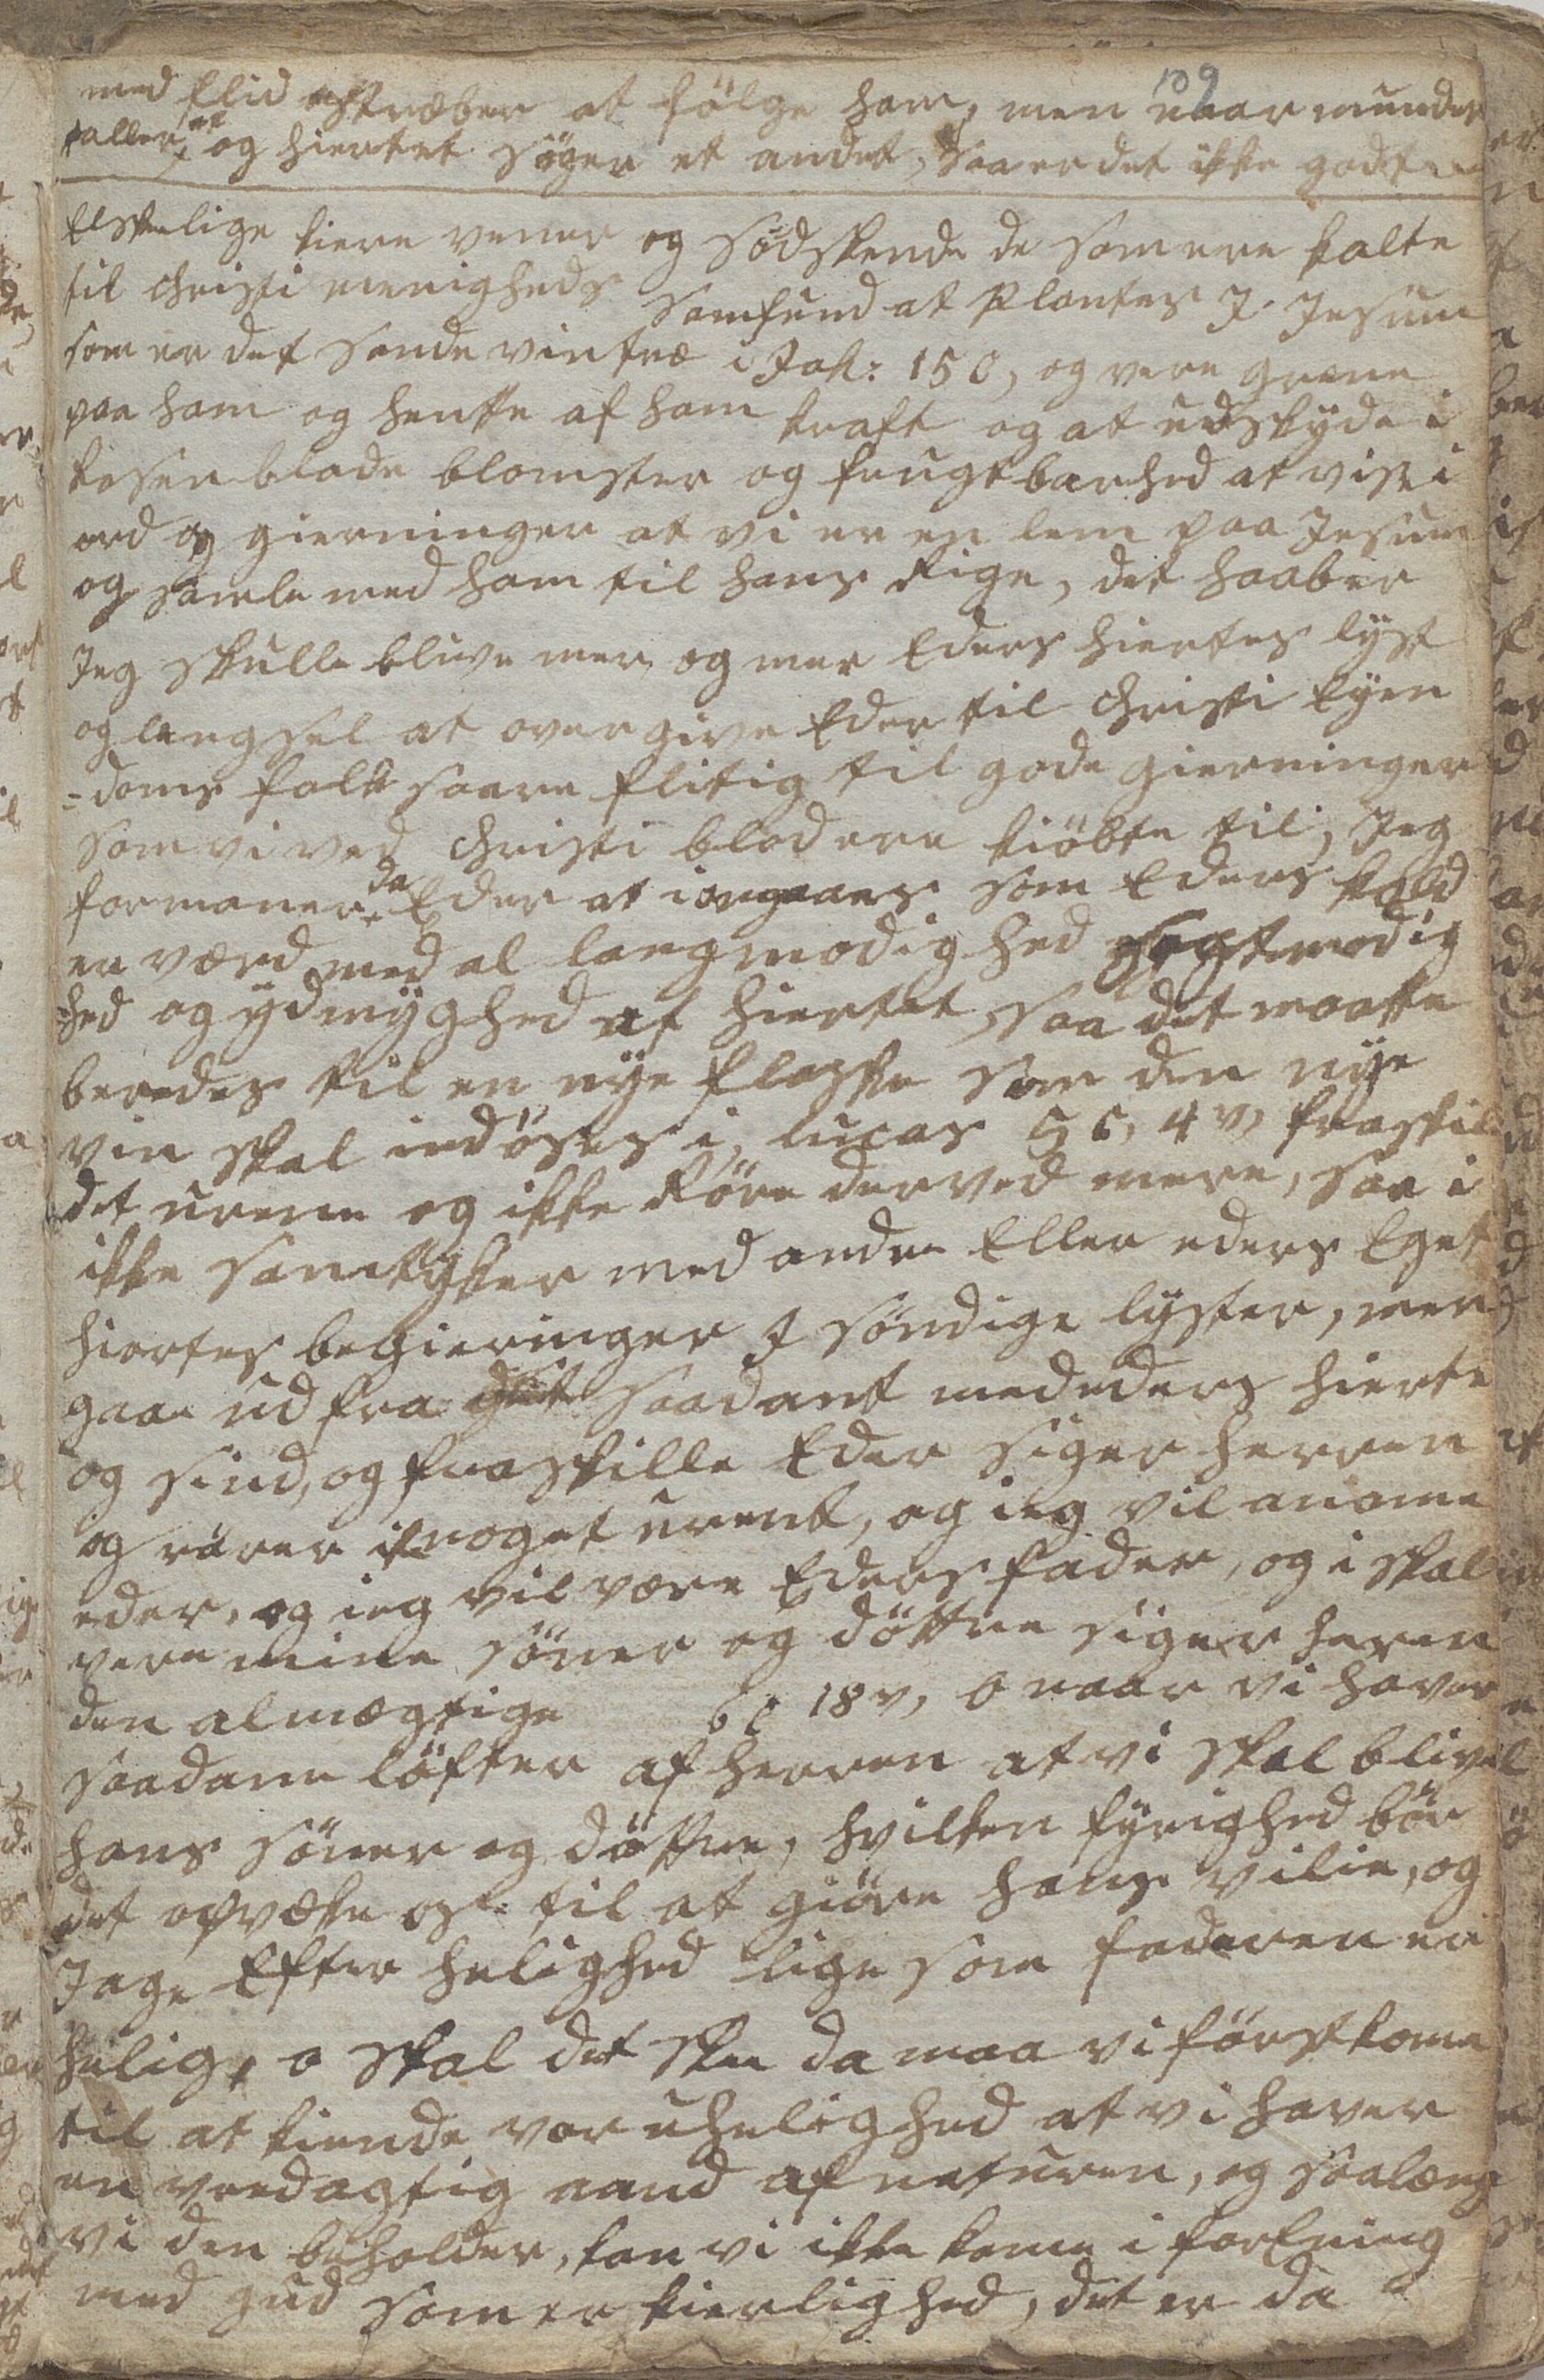 109
med flid estræber at følge ham, men naar munden
taller et og hiertet søger et andet, saa er det ikke godt
Elskelige kiere venner og södskende de som ere kalte
til christi menigheds samfund at Plantes J. Jesum
som er det sande vintræ i Joh: 15 C, og vere grene
paa ham og hente af ham kraft og at udskyde i
knoser blade blomster og frugtbarhed at vise i
ord og gierninger at vi er en lem paa Jesum
og samle med ham til hans Rige, det haaber
Jeg skulle blive mer og mer Eders hiertes lyst
og lengsel at overgive Eder til Christi Eyen
-doms folk saare flitig til gode gierninger
som vi ved Christi blod ere kiöbte til, Jeg
formaner da Eder at i omgaaes som Eders kald
er værd med al langmodighed sagtmodig
-hed og ydmyghed af hiertet, saa det maatte
beredes til en nye flaske som den nye
vin skal indöses i, lucas 5 C, 4 v, fraskil
det urene og ikke Röre derved mere, saa i
ikke samtykker med andre Eller eders Eget
hiertes begieringer J söndige lyster, men
gaae ud fra saadant med eders hierte
og sind, og fraskille Eder siger herren
og rörer ik noget urent, og ieg vil anamme
eder, og ieg vil være Eders fader, og i skal
vere mine söner og döttre siger herren
den almægtige 6 C 18 v, O naar vi haver
saadanne löfter af herren at vi skal blive
hans söner og döttre, hvilken fyrighed bör
det opvekke os til at giöre hans vilie, og
Jage Efter helighed lige som faderen er
helig, o skal det skee da maa vi först kome
til at kiende vor uhelighed at vi haver
en vredagtig aand af naturen, og saalænge
vi den beholder, kan vi ikke kome i forEning
med gud som er kierlighed, det er da